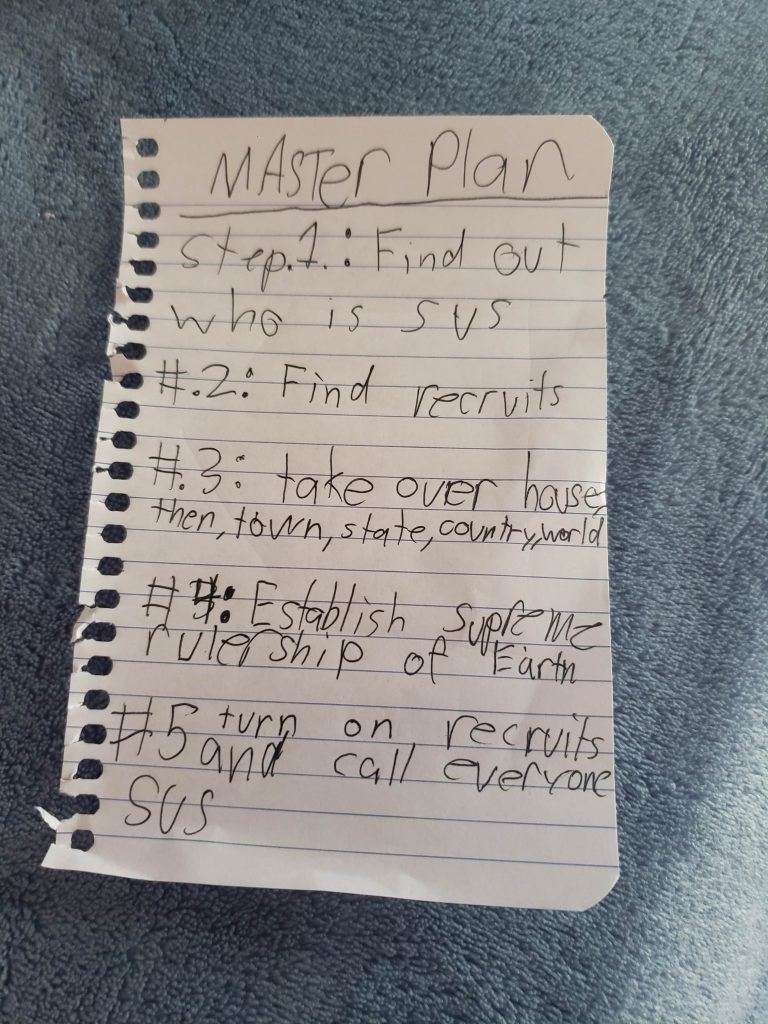 MASTer Plan
step.1.: Find out
who is sus
#.2: Find recruits
#.3: take over house,
then, town, state, country, world
#4: Establish supreme
rulership of Earth
#5 turn on recruits
and call everyone
SUS